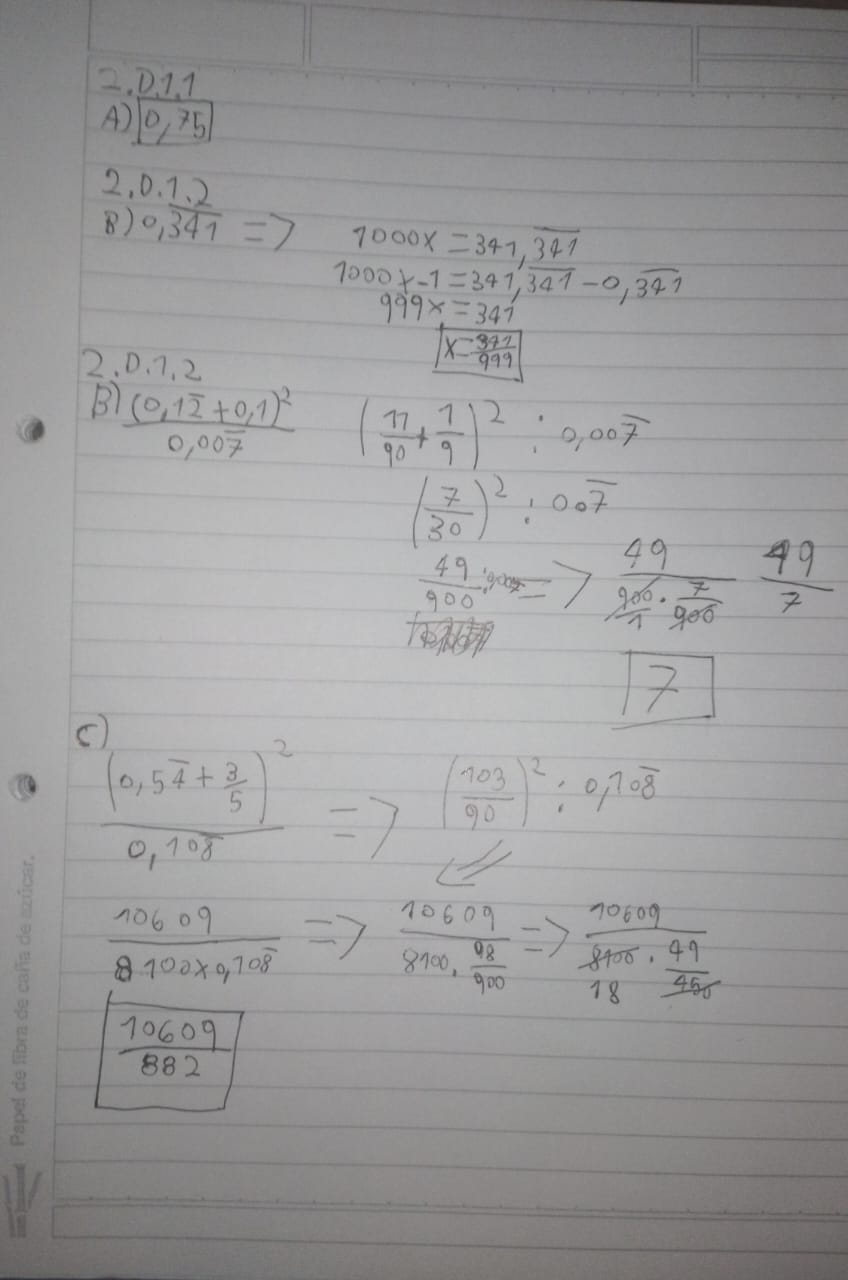 2.D.1.1
A) 0,75
2.D.1.2
B) 0,3̅4̅1̅ => 1000x = 341,3̅4̅1̅
1000x-1 = 341,3̅4̅1̅ - 0,3̅4̅1̅
999x = 341
x = 341/999
2.D.1.2
B) (0,12̅ + 0,1)²/0,007̅ (11/90 + 1/9)² : 0,007̅
(7/30)² : 007̅
49/900 : 0,007 => 49/(900/1 · 7/900) 49/7
7
C)
(0,54̅ + 3/5)²/0,108̅ => (103/90)² : 0,108̅
10609/(8100x0,108̅) => 10609/(8100 · 98/900) => 10609/(8100 · 49/450)
18
10609/882
Papel de fibra de caña de azúcar.